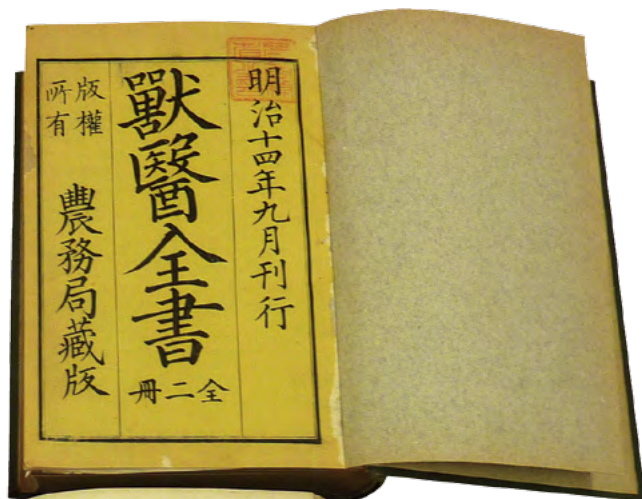 明治十四年九月刊行
獸醫全書
全二冊
版權
所有
農務局藏版